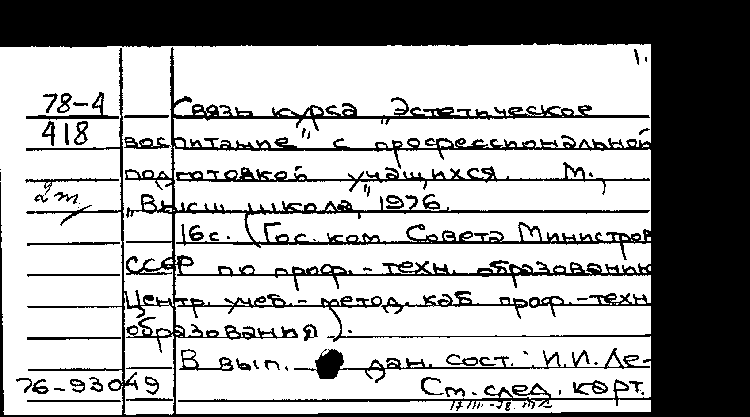 1.
78-4 Связь курса „Эстетическое
418 воспитание" с профессиональной
подготовкой учащихся. М.,
2 т „Высш. школа", 1976.
16 с. (Гос. ком. Совета Министров
СССР по проф.-техн. образованию
Центр. учеб.-метод. каб. проф.-техн
образования).
В вып. дан. сост.: И.И. Ле-
76-93049 См. след. карт.